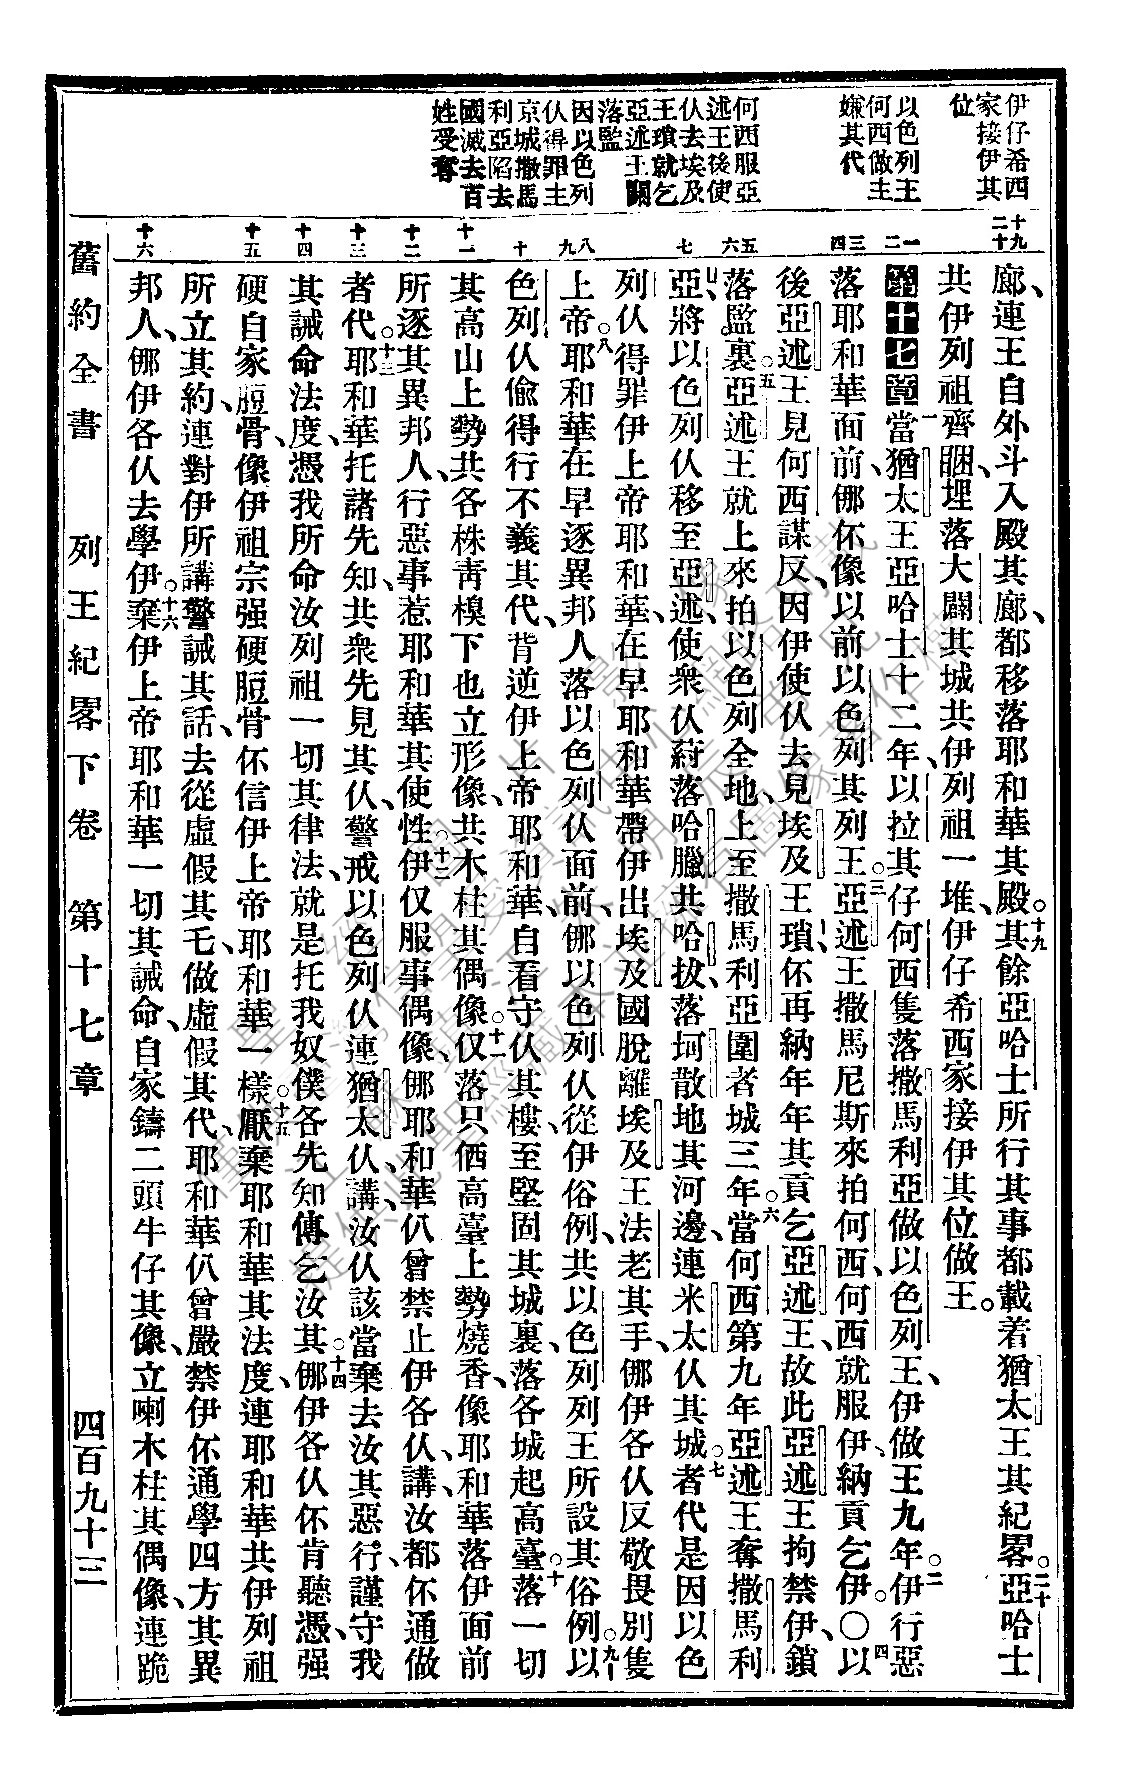 伊仔希西
家接伊其
位
以色列王
何西做主
嫌其代
何西服亞
述王後使
伙去埃及
王瑣就乞
亞述王關
落監
因以色列
伙得罪主
京城撒馬
利亞陷去
國滅去百
姓受奪
十九
二十
一
二
三
四
五
六
七
八
九
十
十一
十二
十三
十四
十五
十六
廊、連王自外斗入殿其廊、都移落耶和華其殿。十九其餘亞哈士所行其事都載着猶太王其紀畧。二十亞哈士
共伊列祖齊睏、埋落大闢其城共伊列祖一堆、伊仔希西家接伊其位做王。
第十七章 一當猶太王亞哈士十二年、以拉其仔何西隻落撒馬利亞做以色列王、伊做王九年。二伊行惡
落耶和華面前、㑚伓像以前以色列其列王。三亞述王撒馬尼斯來拍何西、何西就服伊、納貢乞伊。○四以
後亞述王見何西謀反、因伊使伙去見埃及王瑣、伓再納年年其貢、乞亞述王、故此亞述王拘禁伊、鎖
落監裏。五亞述王就上來拍以色列全地、上至撒馬利亞圍者城三年。六當何西第九年亞述王奪撒馬利
亞、將以色列伙移至亞述、使衆伙葤落哈臘共哈拔、落坷散地其河邊、連米太伙其城。七者代是因以色
列伙得罪伊上帝耶和華、在早耶和華帶伊出埃及國脫離埃及王法老其手、㑚伊各伙反敬畏別隻
上帝。八耶和華在早逐異邦人落以色列伙面前、㑚以色列伙從伊俗例、共以色列列王所設其俗例。九以
色列伙偷得行不義其代、背逆伊上帝耶和華、自看守伙其樓、至堅固其城裏、落各城起高臺。十落一切
其高山上勢、共各株靑樹下也立形像、共木柱其偶像。十一仅落只偭高臺上勢燒香、像耶和華落伊面前
所逐其異邦人、行惡事惹耶和華其使性。十二伊仅服事偶像、㑚耶和華仈曾禁止伊各伙、講、汝都伓通做
者代。十三耶和華托諸先知、共衆先見其伙、警戒以色列伙連猶太伙、講、汝伙該當棄去汝其惡行、謹守我
其誡命法度、憑我所命汝列祖一切其律法、就是托我奴僕各先知傳乞汝其。十四㑚伊各伙伓肯聽憑、强
硬自家脰骨、像伊祖宗强硬脰骨、伓信伊上帝耶和華一樣。十五厭棄耶和華其法度、連耶和華共伊列祖
所立其約、連對伊所講警誡其話、去從虛假其乇、做虛假其代、耶和華仈曾嚴禁伊伓通學四方其異
邦人、㑚伊各伙去學伊。十六棄伊上帝耶和華一切其誡命、自家鑄二頭牛仔其像、立喇木柱其偶像、連跪
舊約全書 列王紀畧下卷 第十七章 四百九十三